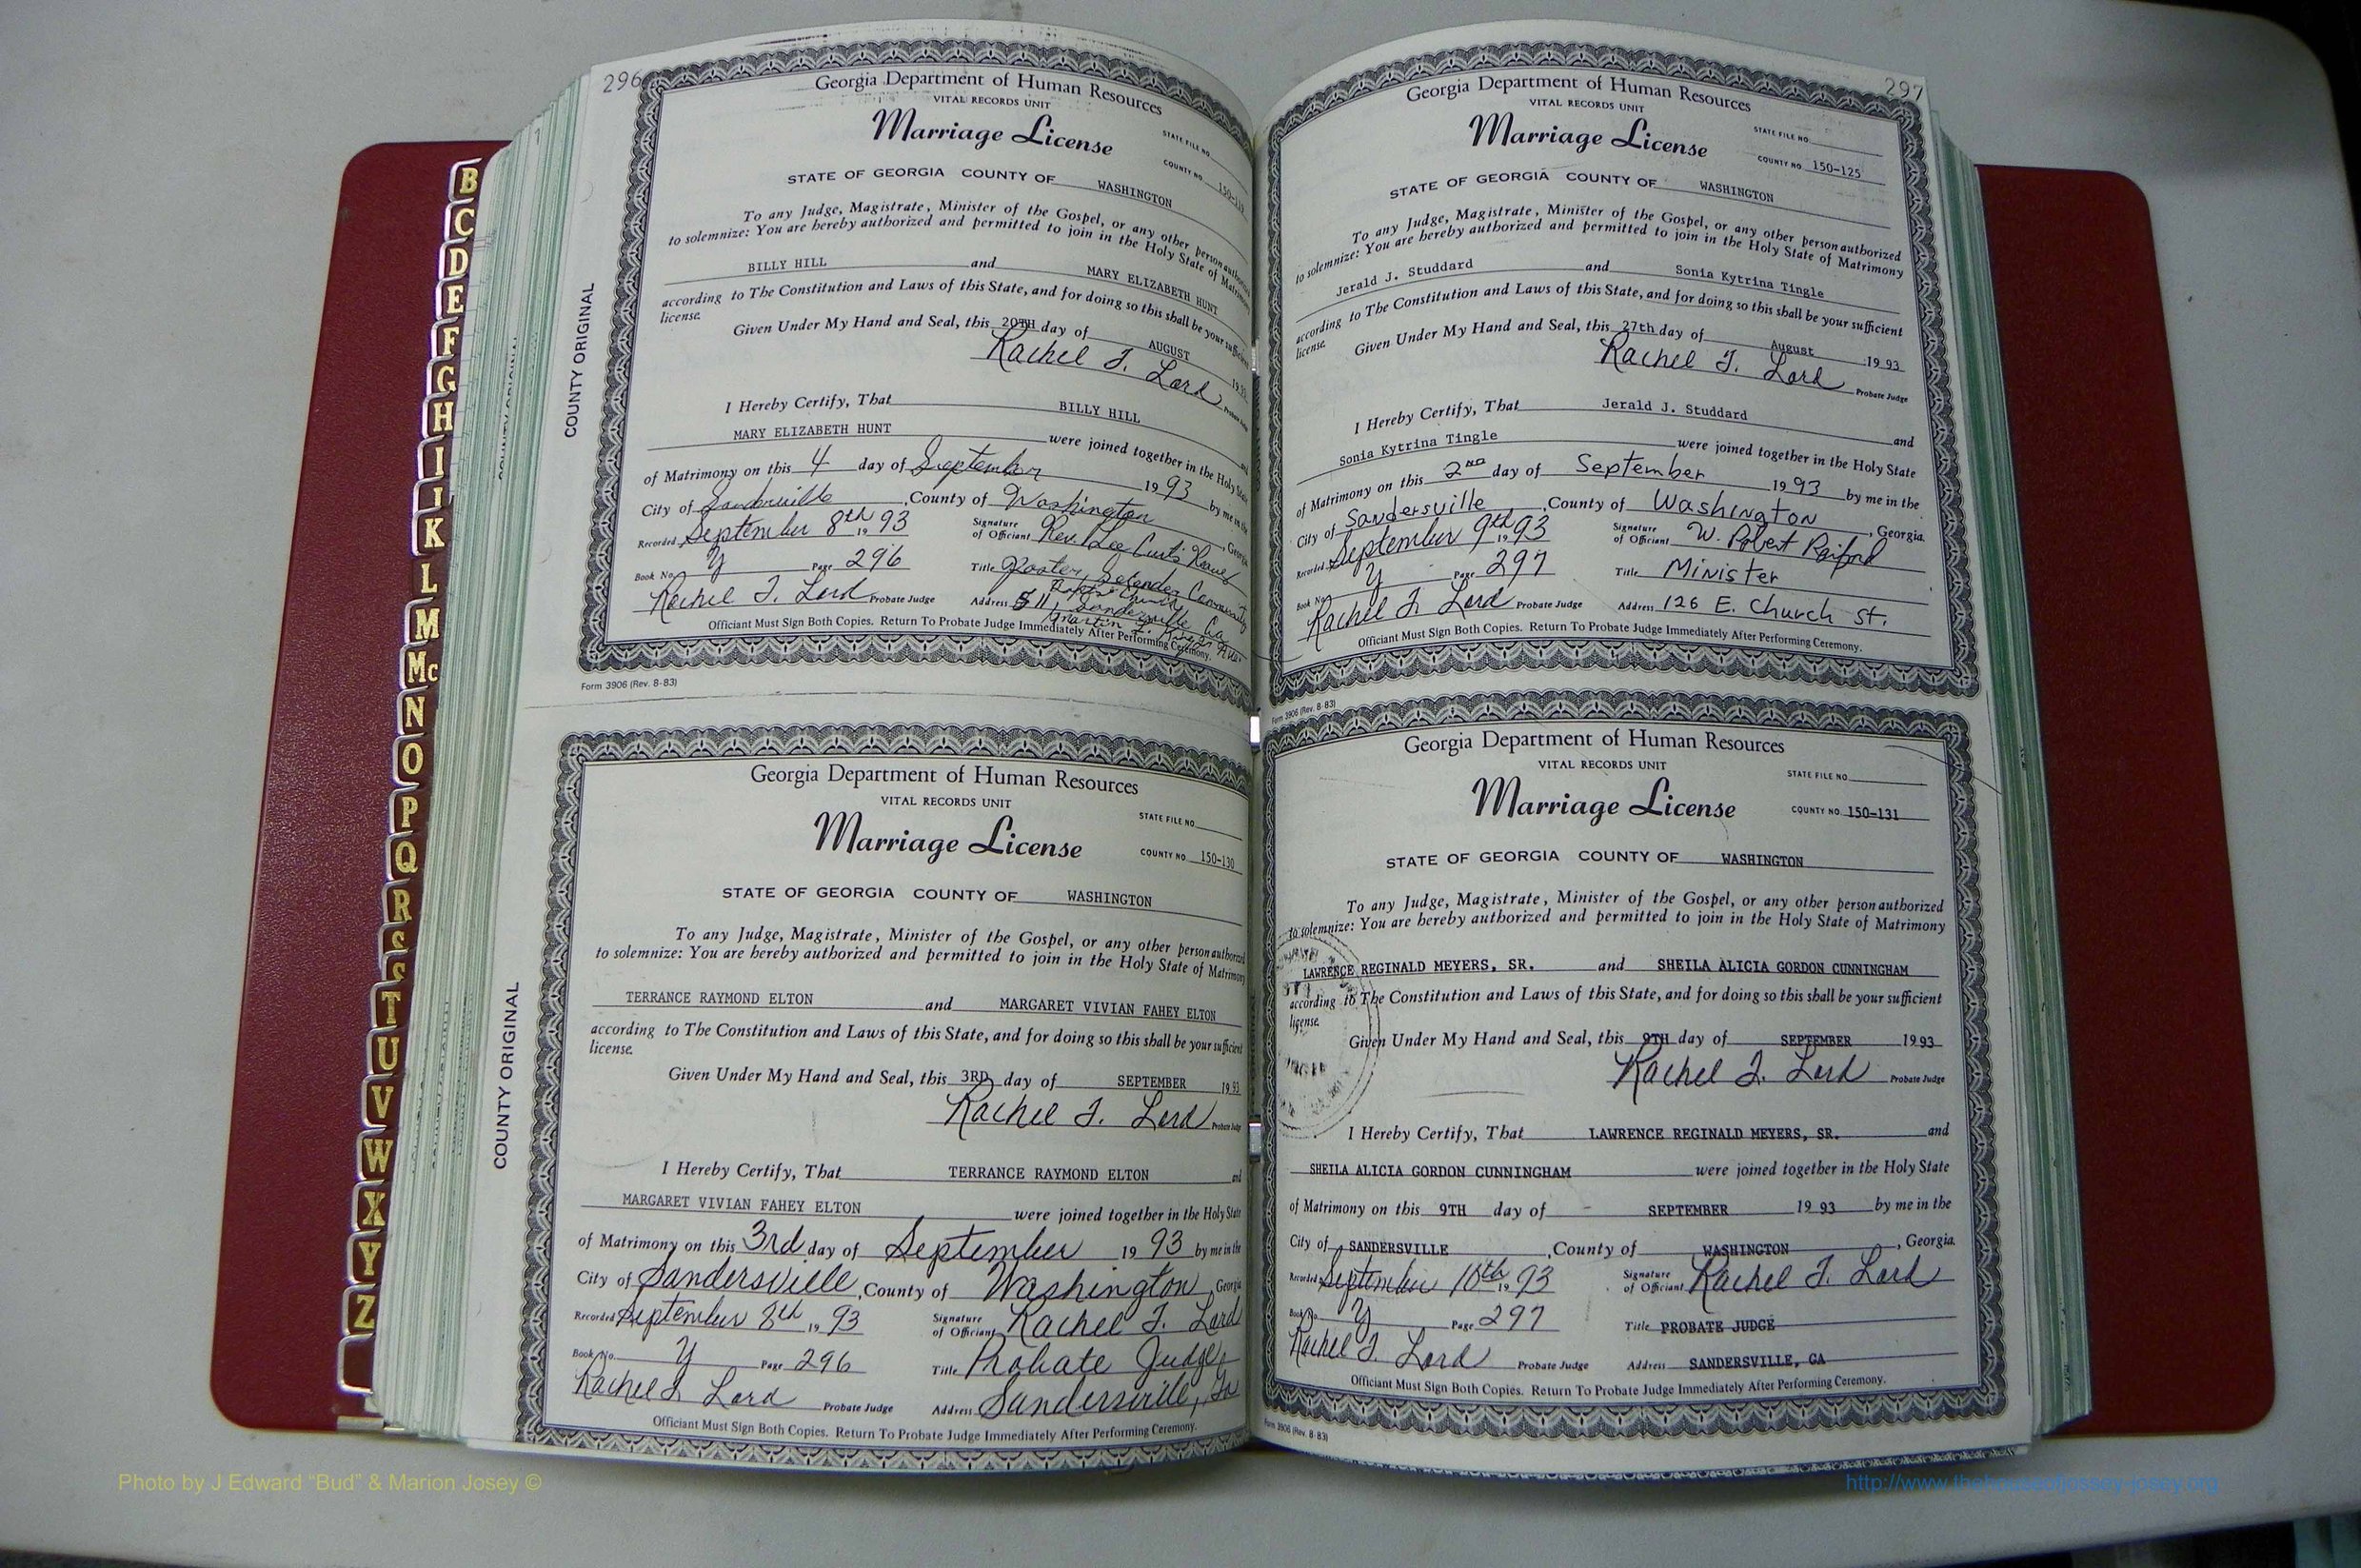 296
Georgia Department of Human Resources
VITAL RECORDS UNIT
Marriage License
STATE FILE NO.
COUNTY NO.
STATE OF GEORGIA COUNTY OF WASHINGTON
To any Judge, Magistrate, Minister of the Gospel, or any other person authorized
to solemnize: You are hereby authorized and permitted to join in the Holy State of Matrimony
BILLY HILL and MARY ELIZABETH HUNT
according to The Constitution and Laws of this State, and for doing so this shall be your sufficient
license.
Given Under My Hand and Seal, this 20TH day of AUGUST 19
Rachel T. Lord Probate Judge
I Hereby Certify, That BILLY HILL and
MARY ELIZABETH HUNT were joined together in the Holy State
of Matrimony on this 4 day of September 1993 by me in the
City of Sandersville, County of Washington, Georgia
Recorded September 8th 1993 Signature of Officiant Rev. Lee Curtis
Book No. Y Page 296 Title Community
Rachel T. Lord Probate Judge Address 511 Sandersville Ga
Officiant Must Sign Both Copies. Return To Probate Judge Immediately After Performing Ceremony.
Form 3906 (Rev. 8-83)
COUNTY ORIGINAL
Georgia Department of Human Resources
VITAL RECORDS UNIT
Marriage License
STATE FILE NO.
COUNTY NO. 150-130
STATE OF GEORGIA COUNTY OF WASHINGTON
To any Judge, Magistrate, Minister of the Gospel, or any other person authorized
to solemnize: You are hereby authorized and permitted to join in the Holy State of Matrimony
TERRANCE RAYMOND ELTON and MARGARET VIVIAN FAHEY ELTON
according to The Constitution and Laws of this State, and for doing so this shall be your sufficient
license.
Given Under My Hand and Seal, this 3RD day of SEPTEMBER 1993
Rachel T. Lord Probate Judge
I Hereby Certify, That TERRANCE RAYMOND ELTON and
MARGARET VIVIAN FAHEY ELTON were joined together in the Holy State
of Matrimony on this 3rd day of September 1993 by me in the
City of Sandersville, County of Washington, Georgia
Recorded September 8th 1993 Signature of Officiant Rachel T. Lord
Book No. Y Page 296 Title Probate Judge
Rachel T. Lord Probate Judge Address Sandersville, Ga
Officiant Must Sign Both Copies. Return To Probate Judge Immediately After Performing Ceremony.
COUNTY ORIGINAL
297
Georgia Department of Human Resources
VITAL RECORDS UNIT
Marriage License
STATE FILE NO.
COUNTY NO. 150-125
STATE OF GEORGIA COUNTY OF WASHINGTON
To any Judge, Magistrate, Minister of the Gospel, or any other person authorized
to solemnize: You are hereby authorized and permitted to join in the Holy State of Matrimony
Jerald J. Studdard and Sonia Kytrina Tingle
according to The Constitution and Laws of this State, and for doing so this shall be your sufficient
license.
Given Under My Hand and Seal, this 27th day of August 1993
Rachel T. Lord Probate Judge
I Hereby Certify, That Jerald J. Studdard and
Sonia Kytrina Tingle were joined together in the Holy State
of Matrimony on this 2nd day of September 1993 by me in the
City of Sandersville, County of Washington, Georgia.
Recorded September 9th 1993 Signature of Officiant W. Robert Raiford
Book No. Y Page 297 Title Minister
Rachel T. Lord Probate Judge Address 126 E. Church St.
Officiant Must Sign Both Copies. Return To Probate Judge Immediately After Performing Ceremony.
Form 3906 (Rev. 8-83)
Georgia Department of Human Resources
VITAL RECORDS UNIT
Marriage License
STATE FILE NO.
COUNTY NO. 150-131
STATE OF GEORGIA COUNTY OF WASHINGTON
To any Judge, Magistrate, Minister of the Gospel, or any other person authorized
to solemnize: You are hereby authorized and permitted to join in the Holy State of Matrimony
LAWRENCE REGINALD MEYERS, SR. and SHEILA ALICIA GORDON CUNNINGHAM
according to The Constitution and Laws of this State, and for doing so this shall be your sufficient
license.
Given Under My Hand and Seal, this 9TH day of SEPTEMBER 1993
Rachel T. Lord Probate Judge
I Hereby Certify, That LAWRENCE REGINALD MEYERS, SR. and
SHEILA ALICIA GORDON CUNNINGHAM were joined together in the Holy State
of Matrimony on this 9TH day of SEPTEMBER 1993 by me in the
City of SANDERSVILLE, County of WASHINGTON, Georgia.
Recorded September 10th 1993 Signature of Officiant Rachel T. Lord
Book No. Y Page 297 Title PROBATE JUDGE
Rachel T. Lord Probate Judge Address SANDERSVILLE, GA
Officiant Must Sign Both Copies. Return To Probate Judge Immediately After Performing Ceremony.
Form 3906 (Rev. 8-83)
B
C
D
E
F
G
H
I
J
K
L
M
Mc
N
O
P
Q
R
S
T
U
V
W
X
Y
Z
Photo by J Edward "Bud" & Marion Josey ©
http://www.thehouseofjossey-josey.org